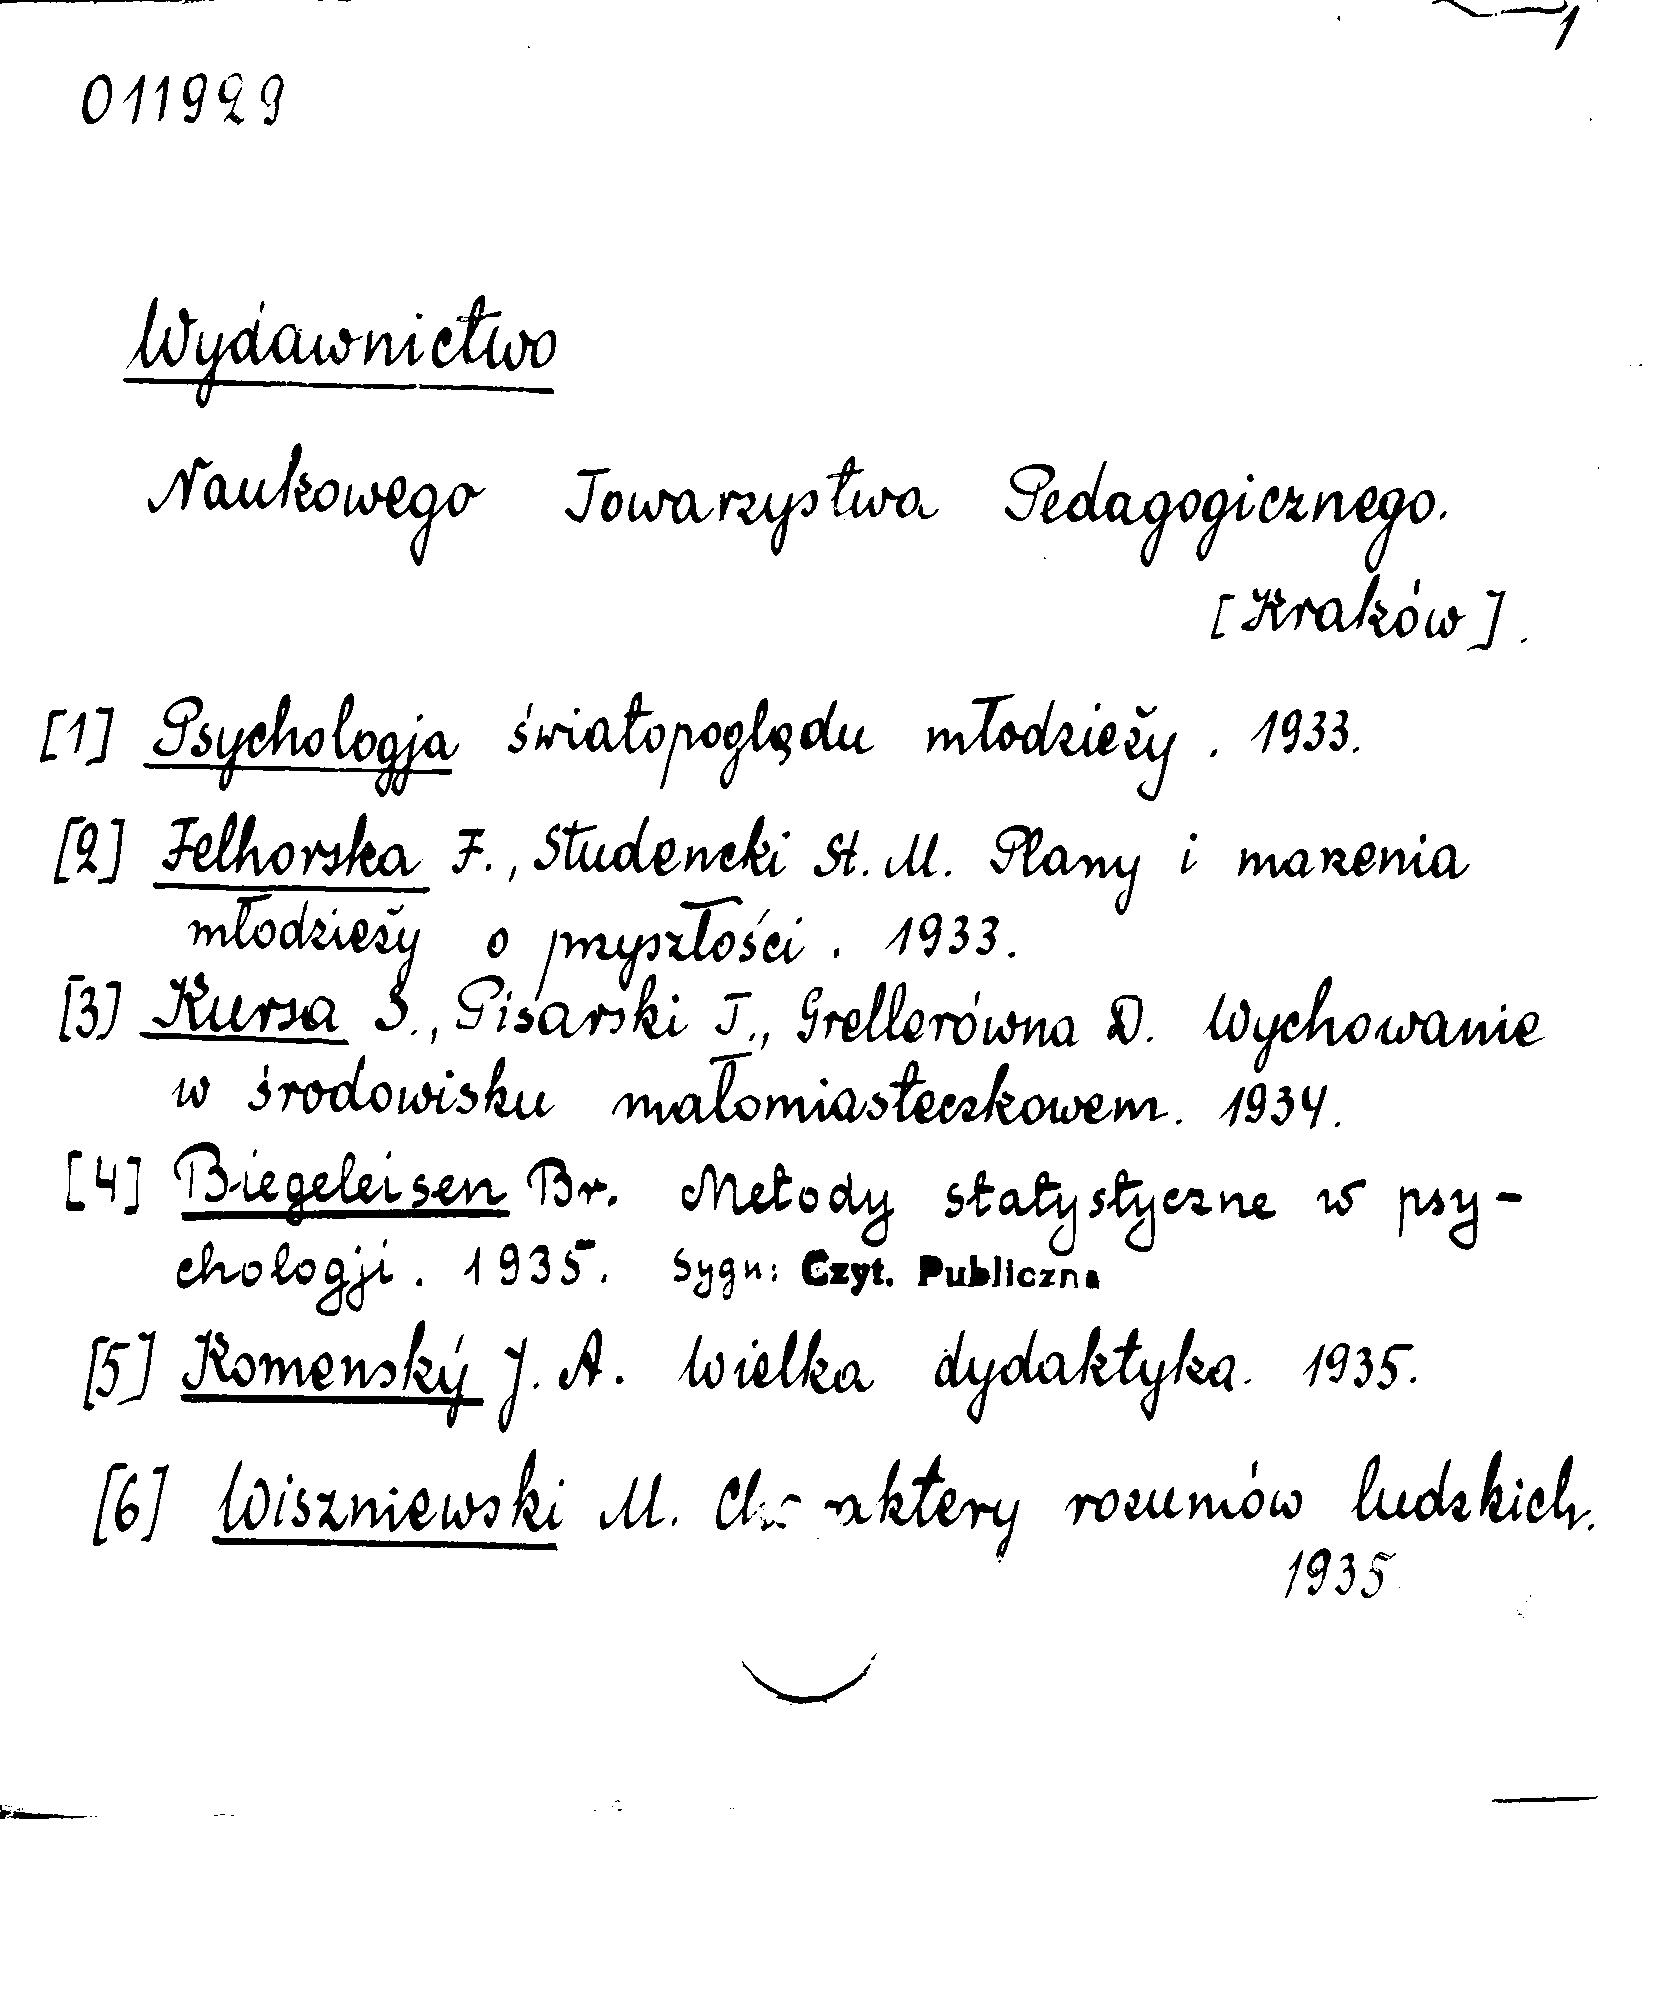 1
011929
Wydawnictwo
Naukowego Towarzystwa Pedagogicznego.
[Kraków].
[1] Psychologja światopoglądu młodzieży. 1933.
[2] Felhorska F., Studencki St. M. Plany i marzenia
młodzieży o przyszłości. 1933.
[3] Kursa S., Pisarski T., Grellerówna D. Wychowanie
w środowisku małomiasteczkowem. 1934.
[4] Biegeleisen Br. Metody statystyczne w psy-
chologji. 1935. Sygn: Czyt. Publiczna
[5] Komenský J. A. Wielka dydaktyka. 1935.
[6] Wiszniewski M. Charaktery rozumów ludzkich.
1935